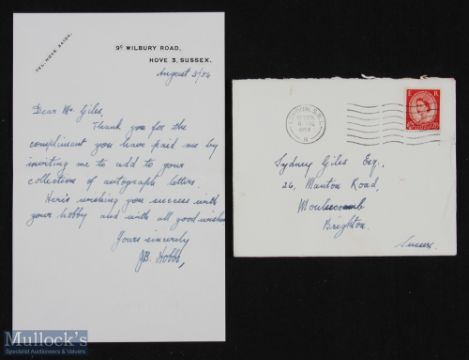 TEL: HOVE
9C WILBURY ROAD,
HOVE 3, SUSSEX.
August 3/54
Dear Mr. Giles,
Thank you for the
compliment you have paid me by
inviting me to add to your
collection of autograph letters.
Here's wishing you success with
your hobby and with all good wishes
Yours sincerely
JB. Hobbs,
1954
Sydney Giles Esq.,
26, Manton Road,
Moulsecoomb
Brighton.
Sussex.
Mullock's
Specialist Auctioneers & Valuers